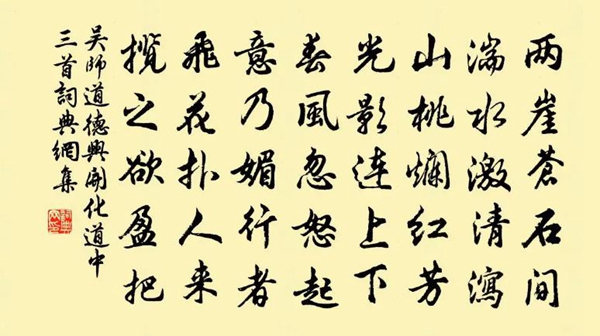 两崖蒼石间
湍水激清瀉
山桃爛红芳
光影连上下
春風忽怒起
意乃媚行者
飛花扑人来
揽之欲盈把
吴師道德興開化道中
三首詞典網集